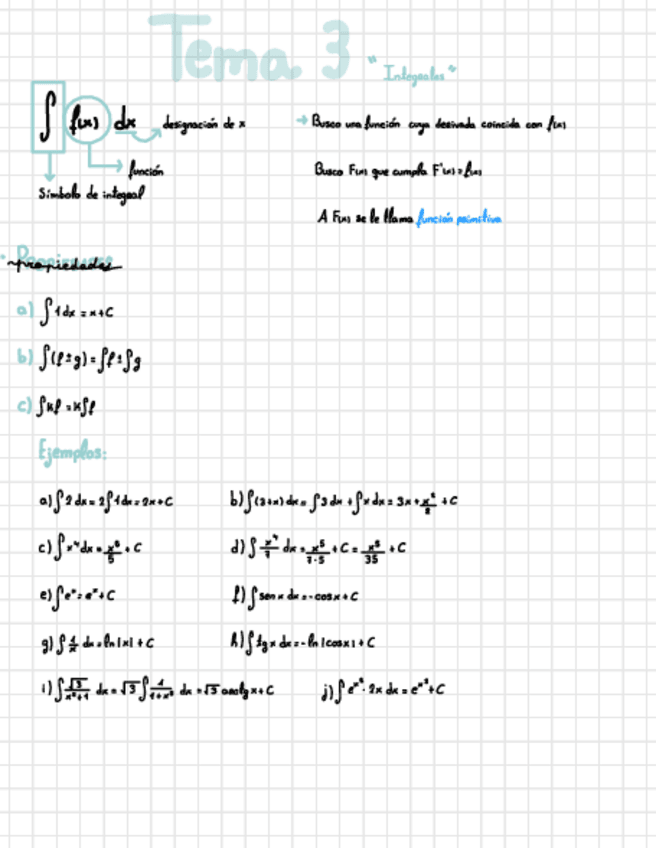 Tema 3 "Integrales"
∫ f(x) dx designación de x
función
Símbolo de integral
→ Busco una función cuya derivada coincida con f(x)
Busco F(x) que cumpla F'(x) = f(x)
A F(x) se le llama función primitiva
propiedades
a) ∫1dx = x+C
b) ∫(f±g) = ∫f ± ∫g
c) ∫kf = k∫f
Ejemplos:
a) ∫2dx = 2∫1dx = 2x+C
b) ∫(3+x)dx = ∫3dx + ∫xdx = 3x + x²/2 + C
c) ∫x⁴dx = x⁵/5 + C
d) ∫x⁴/7 dx = x⁵/7·5 + C = x⁵/35 + C
e) ∫eˣ = eˣ + C
f) ∫sen x dx = -cos x + C
g) ∫1/x dx = ln|x| + C
h) ∫tg x dx = -ln|cosx| + C
i) ∫√3/x²+1 dx = √3∫1/1+x² dx = √3 arctg x + C
j) ∫e^x²·2x dx = e^x² + C